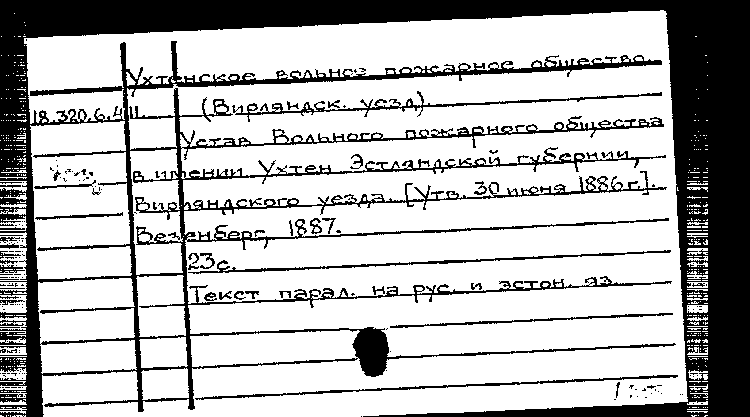 Ухтенское вольное пожарное общество.
18.320.6.411. (Вирляндск. уезд).
Устав Вольного пожарного общества
в имении Ухтен Эстляндской губернии,
Вирляндского уезда. [Утв. 30 июня 1886 г.].
Везенберг, 1887.
23 с.
Текст парал. на рус. и эстон. яз.